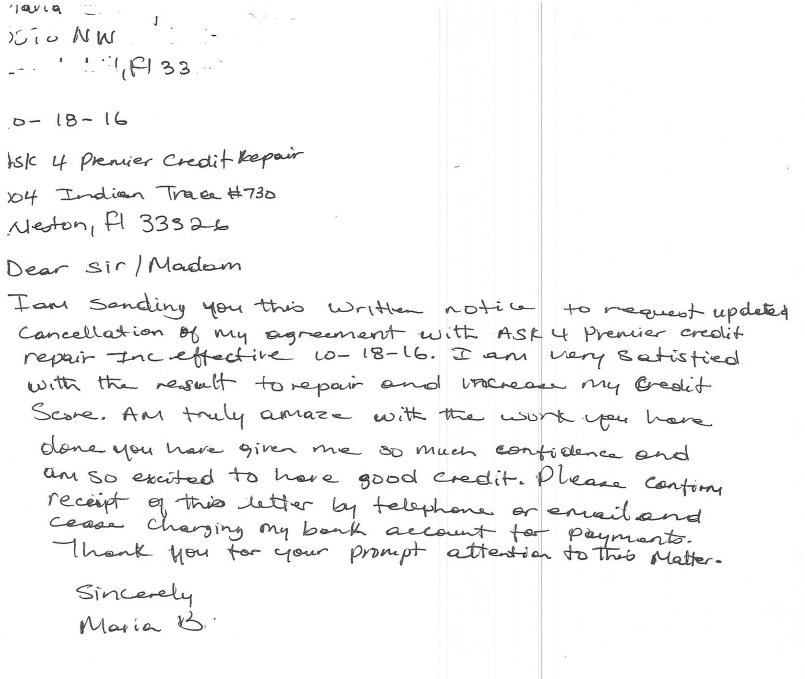 NW
, Fl 33
0-18-16
Ask 4 Premier Credit Repair
304 Indian Trace #730
Weston, Fl 33326
Dear Sir/Madam
I am sending you this written notice to request updated
cancellation of my agreement with ASK 4 Premier credit
repair Inc effective 10-18-16. I am very satistied
with the result to repair and increase my credit
Score. AM truly amaze with the work you have
done you have given me so much confidence and
am so excited to have good credit. Please confirm
receipt of this letter by telephone or email and
cease charging my bank account for payments.
Thank you for your prompt attention to this Matter.
Sincerely
Maria B.